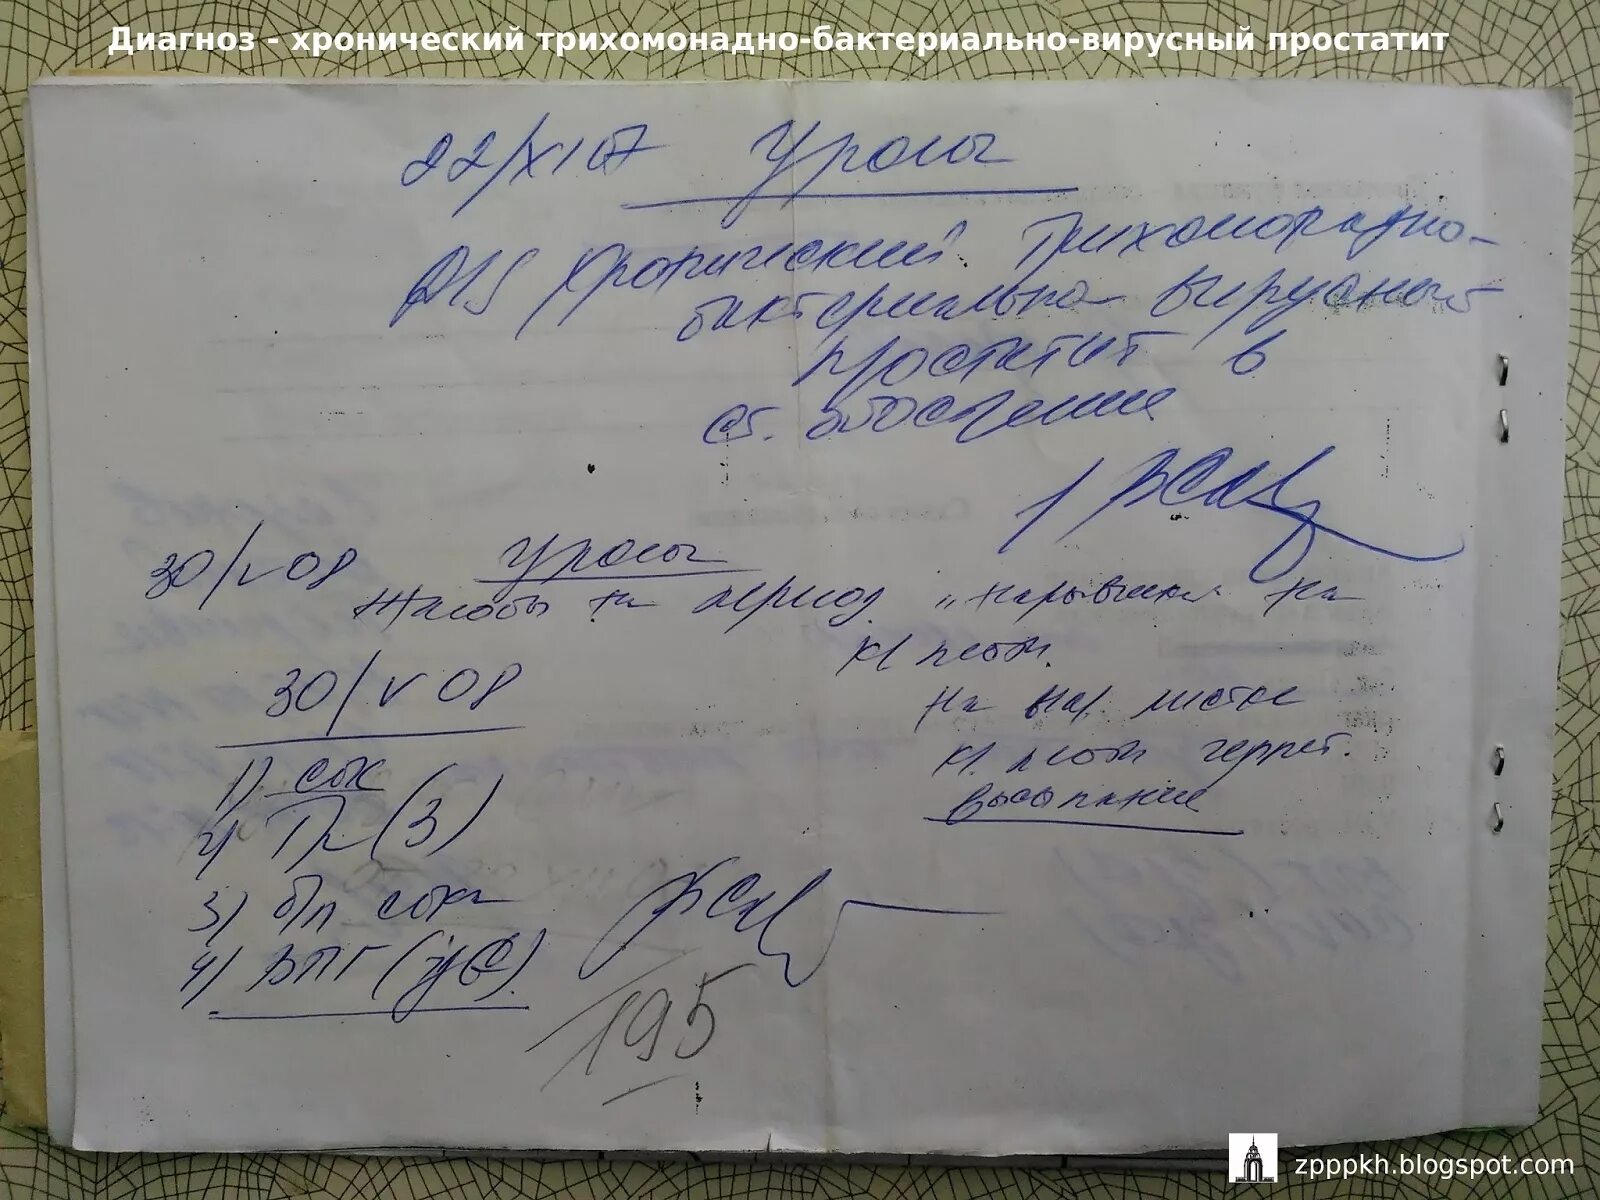 Диагноз - хронический трихомонадно-бактериально-вирусный простатит
22/XI 07 Уролог
DIS Хронический Трихомонадно-
бактериально вирусный
простатит в
ст. обострения
30/V 08 Уролог
Жалобы на период. на
кл. полт.
30/V 08
на вн. листке
кл. герпет.
высыпание
1) сок
2) Тr (3)
3) б/п сока
4) ВПГ
195
zpppkh.blogspot.com